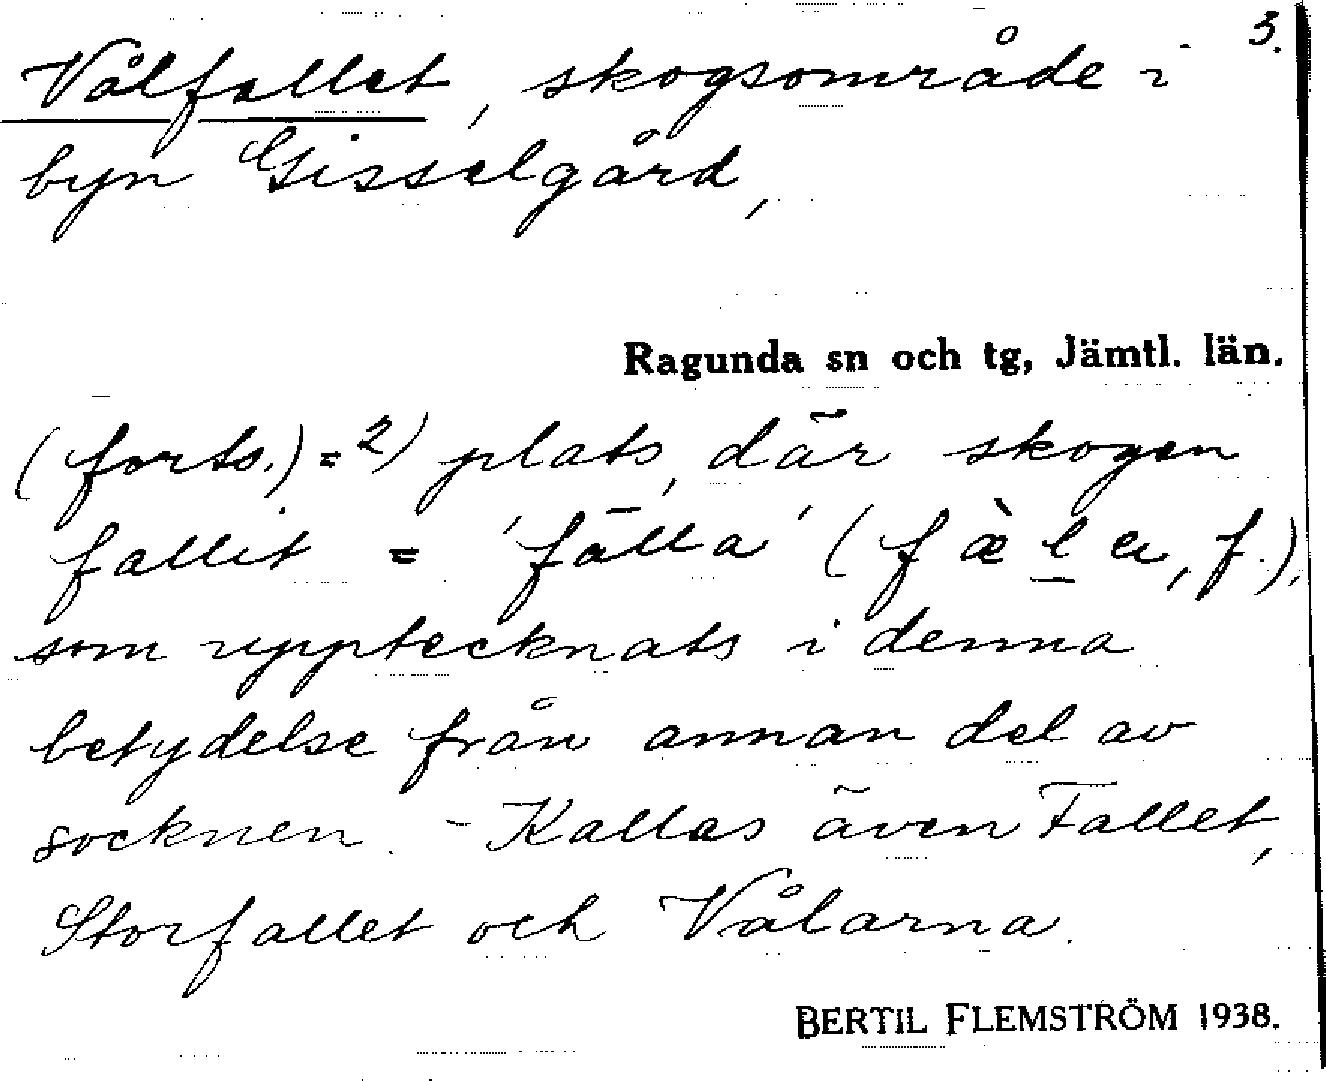 3.
Vålfallet, skogsområde i
byn Gisselgård,
Ragunda sn och tg, Jämtl. län.
(forts.) = 2) plats, där skogen
fallit = 'fälla' (fæ̀l̲a, f.),
som upptecknats i denna
betydelse från annan del av
socknen. - Kallas även Fallet,
Storfallet och Vålarna.
BERTIL FLEMSTRÖM 1938.